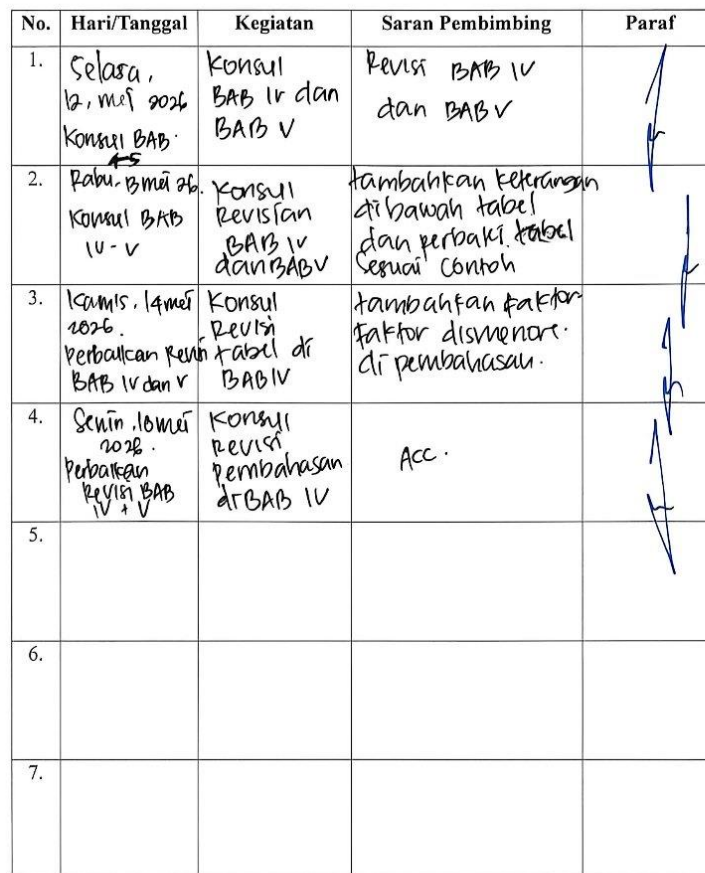 No. Hari/Tanggal Kegiatan Saran Pembimbing Paraf
1.
Selasa,
12, mei 2026
Konsul BAB
4-5
Konsul
BAB IV dan
BAB V
Revisi BAB IV
dan BAB V
2.
Rabu, 13 mei 26.
Konsul BAB
IV - V
Konsul
Revisian
BAB IV
dan BAB V
tambahkan keterangan
dibawah tabel
dan perbaki tabel
Sesuai Contoh
3.
Kamis, 14 mei
2026.
Perbaikan Revisi
BAB IV dan V
Konsul
Revisi
tabel di
BAB IV
tambahkan faktor-
faktor dismenore.
di pembahasan.
4.
Senin, 18 mei
2026.
Perbaikan
Revisi BAB
IV + V
Konsul
Revisi
pembahasan
di BAB IV
ACC.
5.
6.
7.